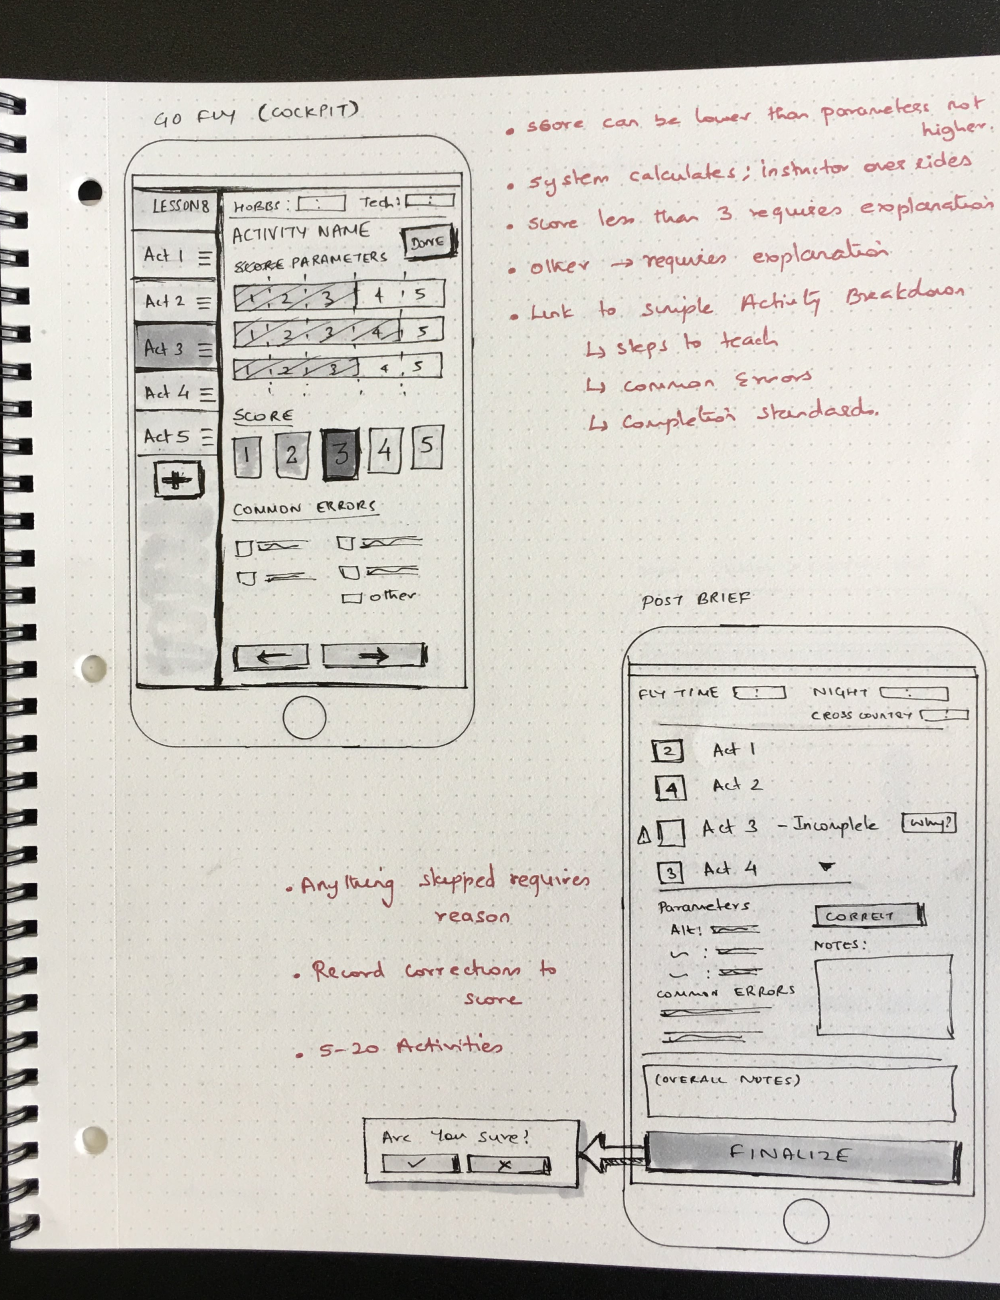 GO FLY (COCKPIT)
LESSON 8
Act 1
Act 2
Act 3
Act 4
Act 5
+
HOBBS: :
Tech: :
ACTIVITY NAME
DONE
SCORE PARAMETERS
1 2 3 4 5
1 2 3 4 5
1 2 3 4 5
SCORE
1 2 3 4 5
COMMON ERRORS
other
← →
• score can be lower than parameters not
higher.
• system calculates; instructor over rides
• score less than 3 requires explanation
• other → requires explanation
• Link to simple Activity Breakdown
↳ steps to teach
↳ common Errors
↳ completion standards.
POST BRIEF
FLY TIME :
NIGHT :
CROSS COUNTRY :
2 Act 1
4 Act 2
! Act 3 - Incomplete why?
3 Act 4
Parameters
Alt:
CORRECT
NOTES:
COMMON ERRORS
(OVERALL NOTES)
FINALIZE
• Anything skipped requires
reason
• Record corrections to
score
• 5-20 Activities
Are you sure?
✓ ✗